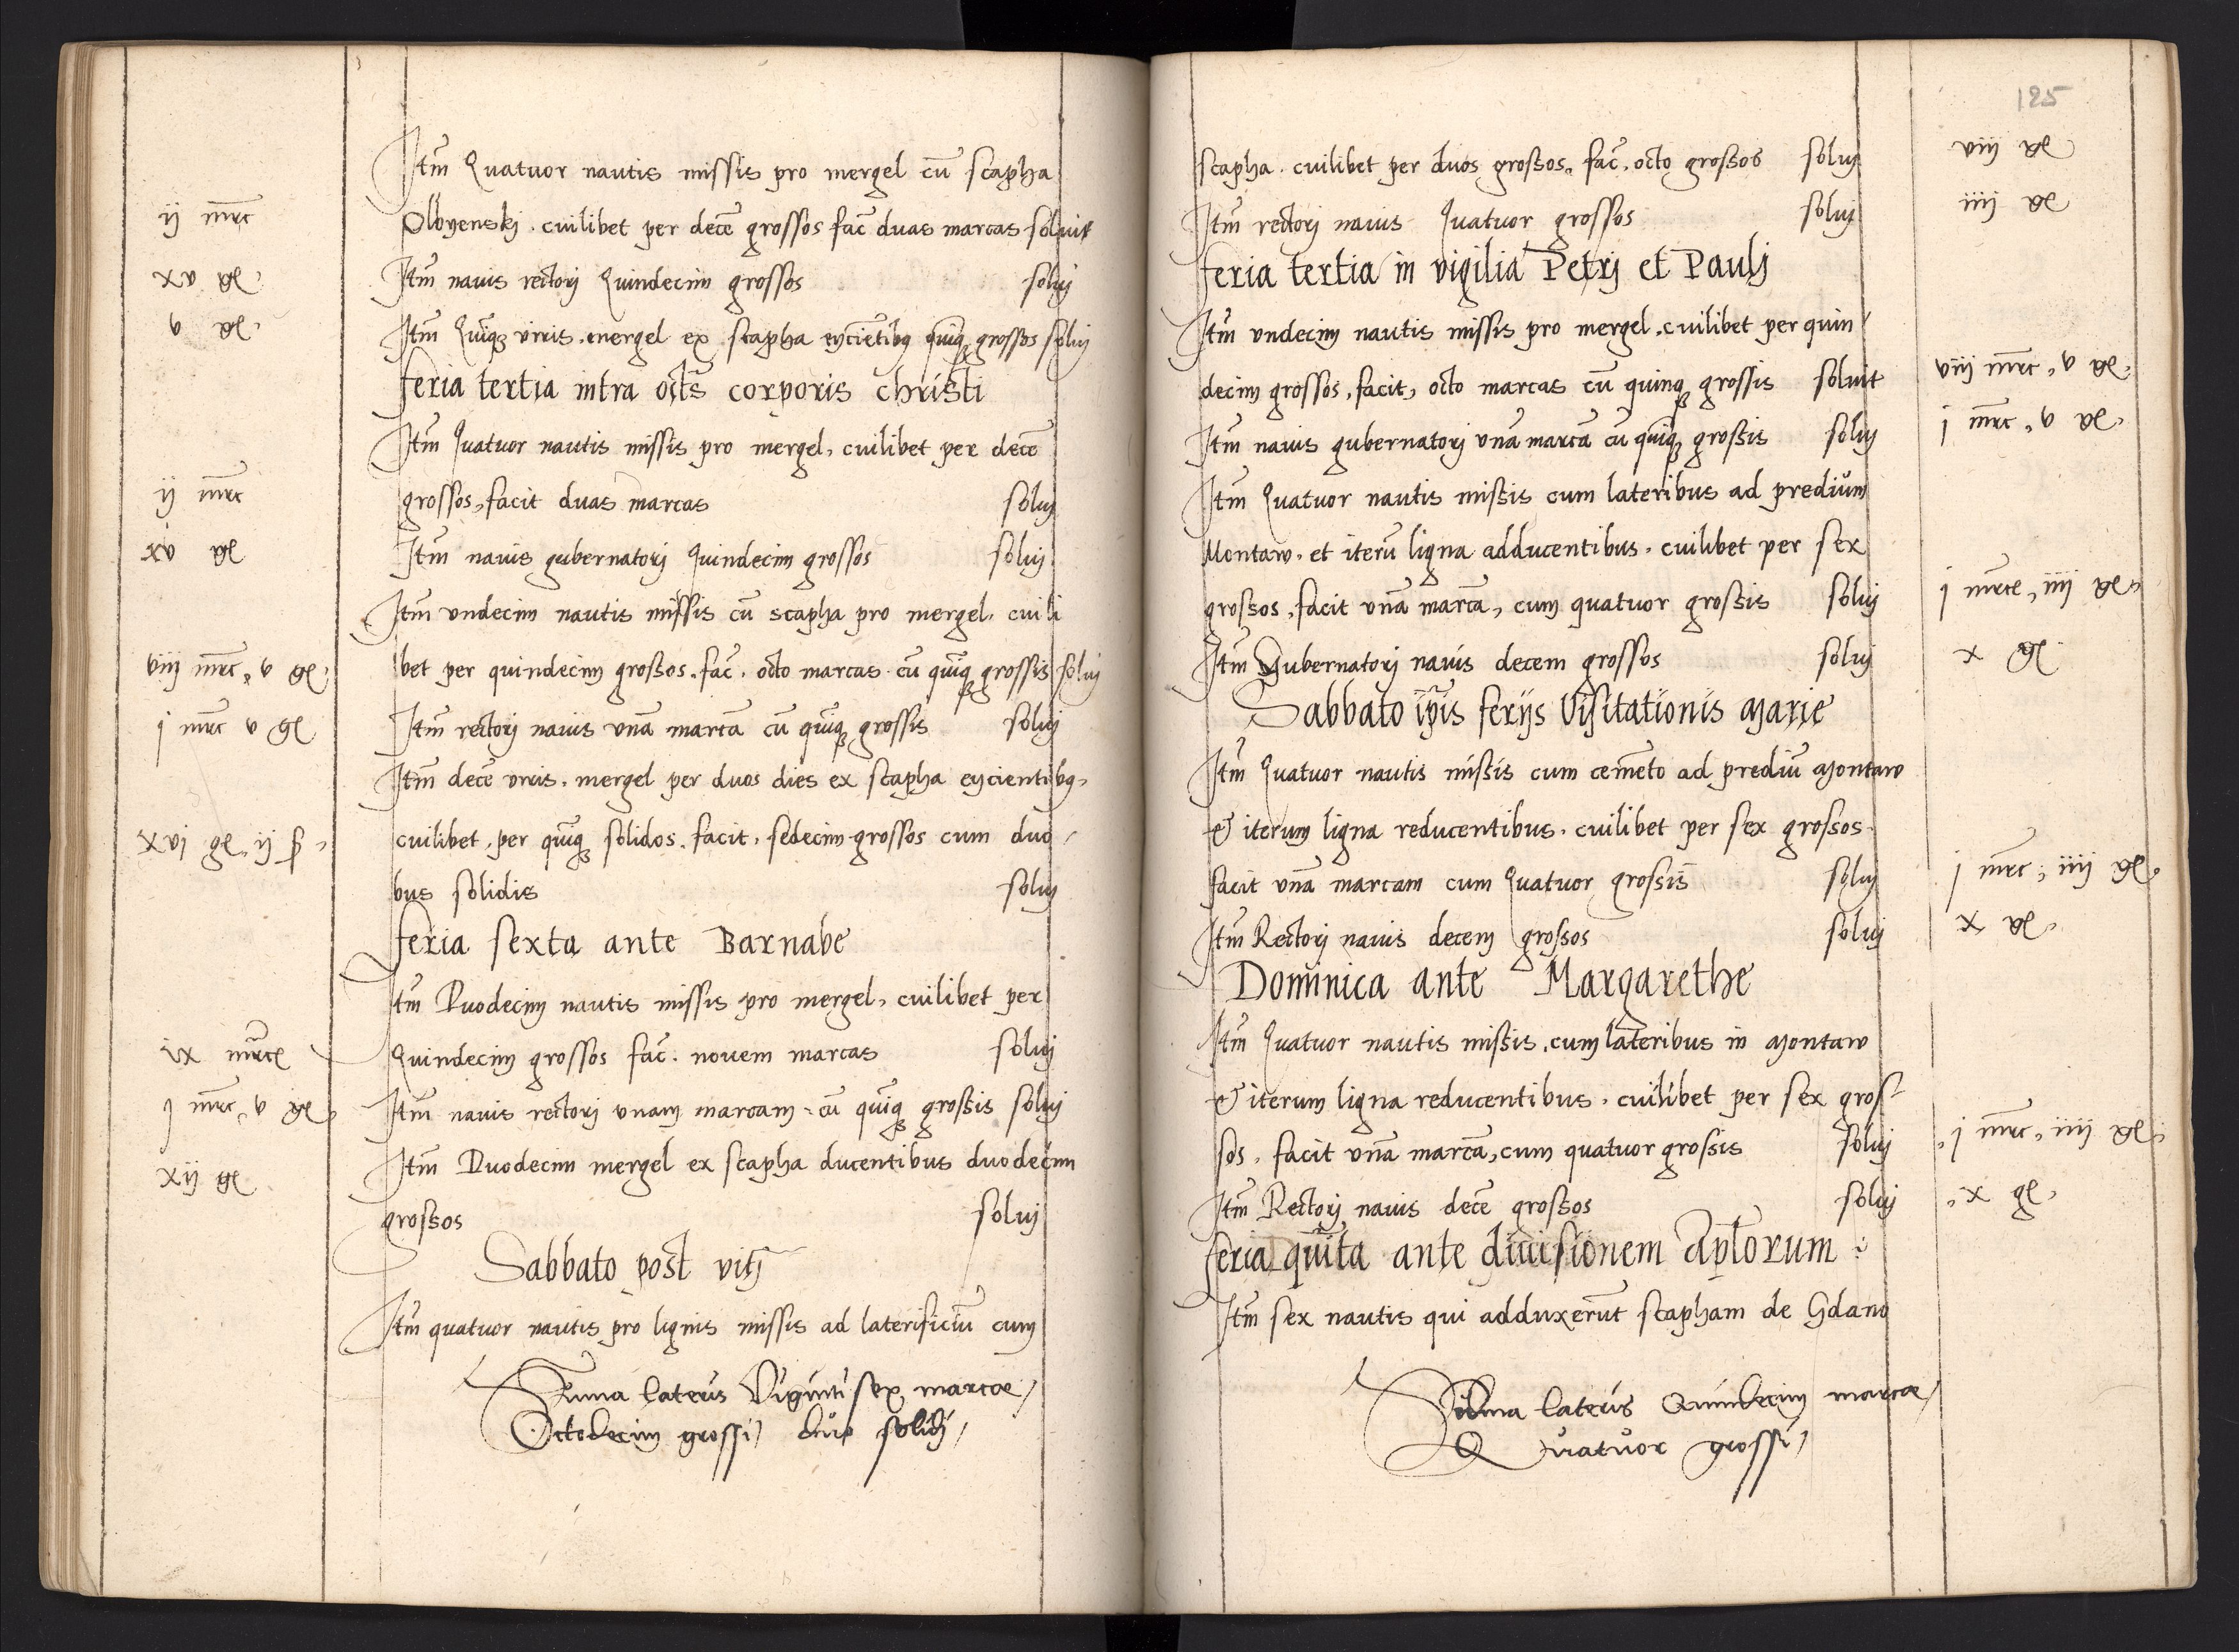 Itm̃ Quatuor nautis missis pro mergel cũ scapha
ij mrc Olbyenskj . cuilibet per decẽ grossos fac̃ duas marcas soluit
xv gr Itm̃ nauis rectorj Quindecim grossos soluj
v gr Itm̃ Quĩq3 viris . mergel ex scapha eycientib9 quĩq3 grossos soluj
feria tertia intra octãs corporis christi
Itm̃ Quatuor nautis missis pro mergel, cuilibet per decẽ
ij mrc grossos, facit duas marcas soluj
xv gr Itm̃ nauis gubernatorj Quindecim grossos soluj
Itm̃ vndecim nautis missis cũ scapha pro mergel. cuili
viij mrc, v gr bet per quindecim grossos. fac̃. octo marcas. cũ quĩq3 grossis soluj
j mrc v gr Itm̃ rectorj nauis vnã marcã cũ quĩq3 grossis soluj
Itm̃ decẽ viris. mergel per duos dies ex scapha eycientib9,
xvj gr, ij ß, cuilibet. per quĩq3 solidos. facit. sedecim grossos cum duo/
bus solidis soluj
feria sexta ante Barnabe
Itm̃ Duodecim nautis missis pro mergel, cuilibet per
ix mrce Quindecim grossos fac̃. nouem marcas soluj
j mrc, v gr, Itm̃ nauis rectorj vnam marcam cũ quĩq3 grossis soluj
xij gr Itm̃ Duodecim mergel ex scapha ducentibus duodecim
grossos soluj
Sabbato post vitj
Itm̃ quatuor nautis pro lignis missis ad laterificiũ cum
Suma lateris Viginti sex marce,
Octodecim grossi, duo solidj,
125
scapha. cuilibet per duos grossos. fac̃. octo grossos soluj viij gr
Itm̃ rectorj nauis Quatuor grossos soluj iiij gr
feria tertia in vigilia Petrj et Paulj
Itm̃ vndecim nautis missis pro mergel. cuilibet per quin/
decim grossos. facit, octo marcas cũ quinq3 grossis soluit viij mrc, v gr,
Itm̃ nauis gubernatorj vnã marcã cũ quĩq3 grossis soluj j mrc, v gr,
Itm̃ Quatuor nautis missis cum lateribus ad predium
Montaw. et iterũ ligna adducentibus. cuilibet per sex
grossos. facit vnã marcã, cum quatuor grossis soluj j mrce, iiij gr,
Itm̃ Gubernatorj nauis decem grossos soluj x gr
Sabbato ip̃is ferijs Visitationis Marie
Itm̃ Quatuor nautis missis cum cemẽto ad prediũ Montaw
& iterum ligna reducentibus. cuilibet per sex grossos.
facit vnã marcam cum Quatuor grossis soluj j mrc, iiij gr,
Itm̃ Rectorj nauis decem grossos soluj x gr,
Dominica ante Margarethe
Itm̃ Quatuor nautis missis. cum lateribus in Montaw
& iterum ligna reducentibus. cuilibet per sex gros-
sos. facit vnã marcã, cum quatuor grossis soluj , j mrc, iiij gr,
Itm̃ Rectorj nauis decẽ grossos soluj , x gr,
feria quĩta ante diuisionem Apl̃orum :
Itm̃ sex nautis qui adduxerũt scapham de Gdano
Suma lateris Quindecim marce,
Quatuor grossi,